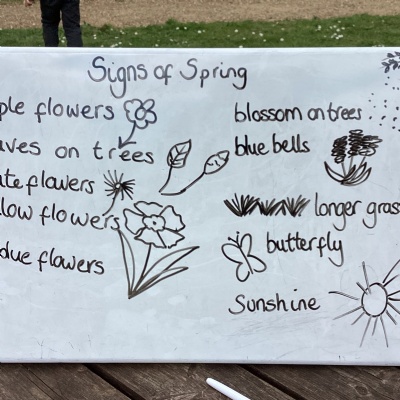 Signs of Spring
ple flowers
aves on trees
ite flowers
low flowers
flowers
blossom on trees
blue bells
longer gras
butterfly
Sunshine